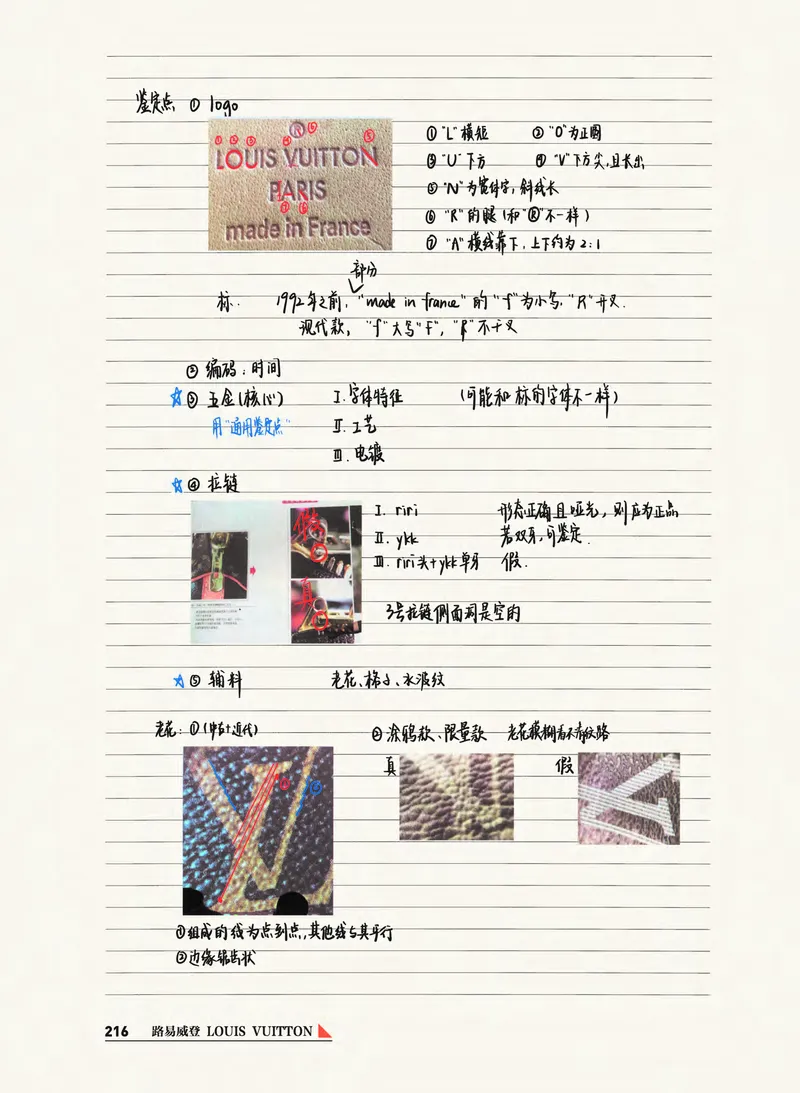 鉴定点 ① logo
① ② ③ ④ ® ⑥ ⑤
LOUIS VUITTON
PARIS
⑦ ⑥
made in France
① "L"横短 ② "O"为正圆
③ "U"下方 ④ "V"下方尖,且长出
⑤ "N"为宽体字,斜线长
⑥ "R"的腿(和"®"不一样)
⑦ "A"横线靠下,上下约为2:1
部分
标: 1992年之前,"made in france"的"f"为小写,"R"开叉.
现代款, "f"大写"F", "R"不开叉
② 编码:时间
☆③ 五金(核心) Ⅰ.字体特征 (可能和标的字体不一样)
用"通用鉴定点" Ⅱ.工艺
Ⅲ.电镀
☆④ 拉链
假
Ⅰ. riri 形态正确且哑光,则应为正品
Ⅱ. ykk 若双牙,可鉴定.
Ⅲ. riri头+ykk单牙 假.
3号拉链侧面洞是空的
☆⑤ 辅料 老花、梯子、水波纹
老花: ①(中古+近代) ② 涂鸦款、限量款 老花模糊看不清纹路
真 假
① ②
①组成的线为点到点,其他线与其平行
②边缘锯齿状
216 路易威登 LOUIS VUITTON